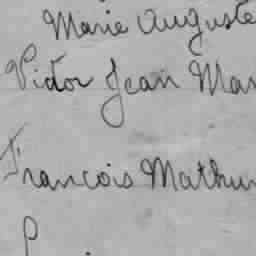 Marie Auguste
Victor Jean Mar
François Mathur